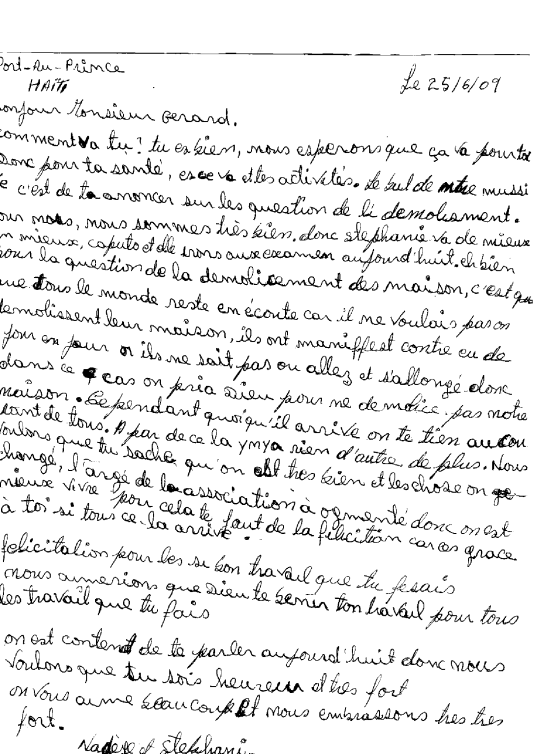 Port-Au-Prince
HAITI
Le 25/6/09
Bonjour Monsieur Gerard.
comment va tu? tu es bien, nous esperons que ça va pour toi
donc pour ta santé, es ce va et les activetés. Le but de mussi
c'est de ta anoncer sur les question de li demolisment.
pour nous, nous sommes très bien. donc stephanie va de mieux
en mieux, caputo et elle irons aux examen aujourd'huit. eh bien
pour la question de la demolicement des maison, c'est que
que tous le monde reste en écoute car il ne voulais pas on
demolissent leur maison, ils ont maniffest contre eu de
jour en jour or ils ne sait pas ou allez et s'allongé donc
dans ce cas on pria Dieu pour ne demolice pas notre
maison. Cependant quoiqu'il arrive on te tien au cou
rant de tous. A par de ce la y n'y a rien d'autre de plus. Nous
voulons que tu sache qu'on est tres bien et les chose on
changé, l'argé de la association à ogmenté donc on est
mieux vivre pour cela te faut de la félicitian car ces grace
à toi si tous ce la arrive.
felicitation pour les si bon travail que tu fesais
nous aumerions que Dieu te benir ton travail pour tous
les travail que tu fais
on est content de ta parler aujourd'huit donc nous
voulons que tu sois heureux et très fort
on vous aume beaucoup et nous embrassons tres tres
fort.
Nadège et Stephani